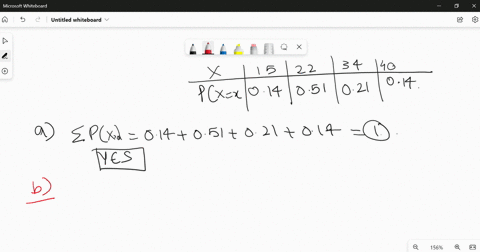 Microsoft Whiteboard
Untitled whiteboard
X 15 22 34 40
P(X=x 0.14 0.51 0.21 0.14.
a) ΣP(x) = 0.14 + 0.51 + 0.21 + 0.14 = 1.
YES
b)
156%